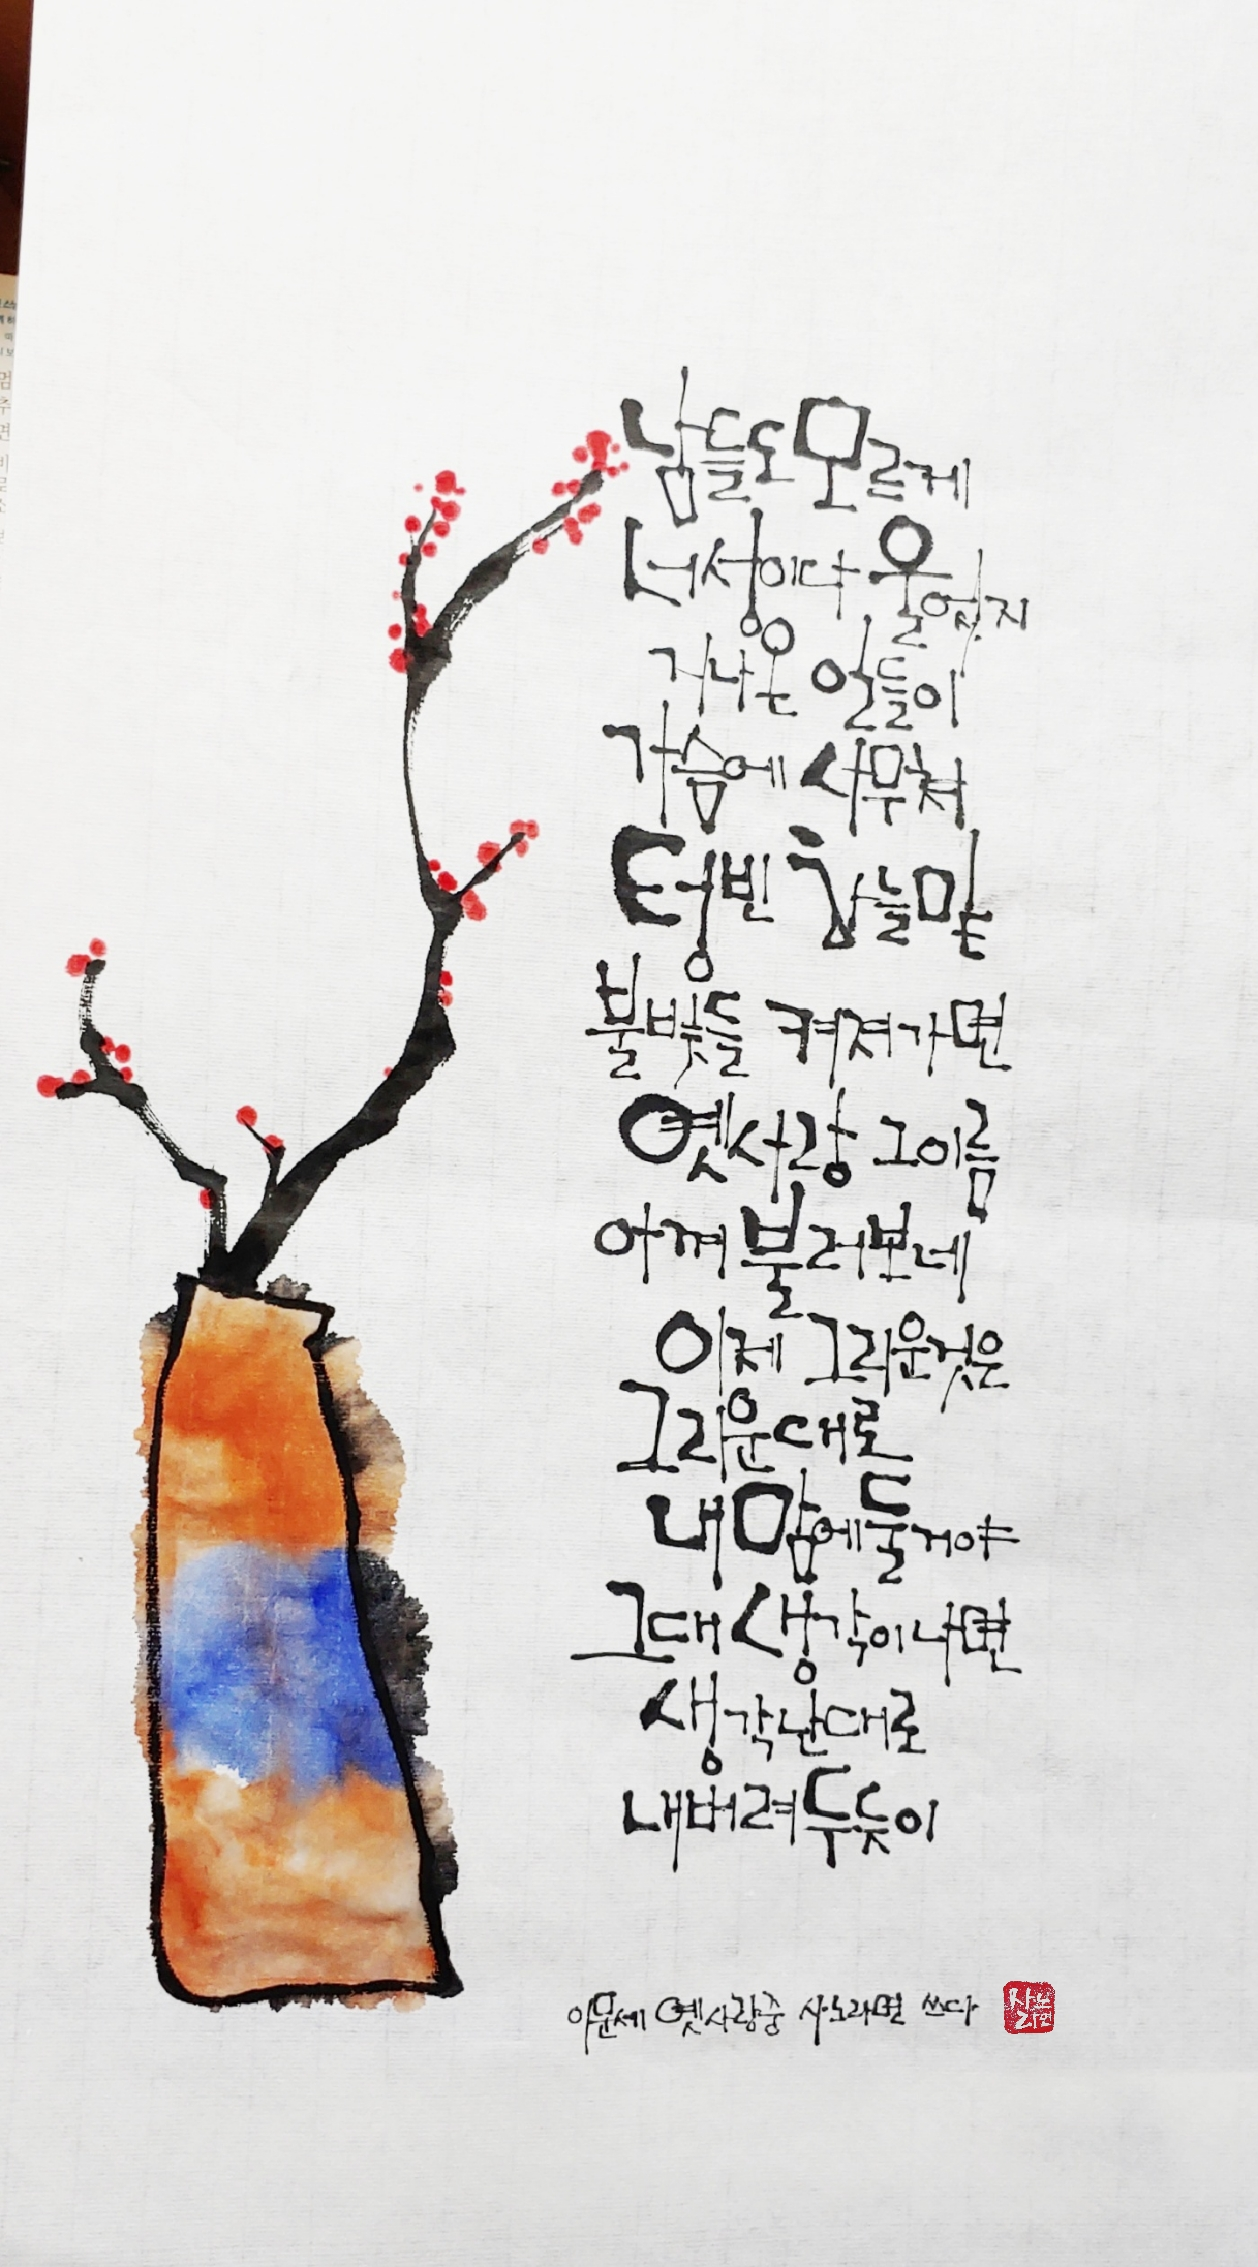 남들도 모르게
너성이다 울었지
지나온 일들이
가슴에 사무쳐
텅빈 하늘밑
불빛들 켜져가면
옛사랑 그이름
아껴 불러보네
이제 그리운것은
그리운대로
내맘에 둘거야
그대 생각이나면
생각난대로
내버려두듯이
이문세 옛사랑중 사노라면 쓰다
사노
라면
멈
추
면
비
로
소